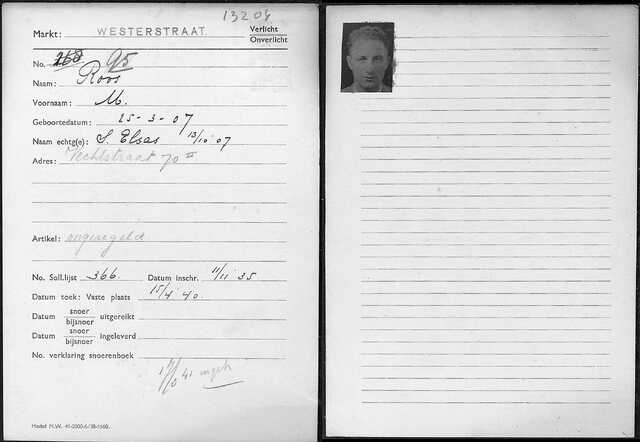 13204
Markt: WESTERSTRAAT. Verlicht
Onverlicht
No. 268 95
Naam: Roos
Voornaam: M.
Geboortedatum: 25-3-07
Naam echtg(e): S. Elsas 13/10 07
Adres: Vechtstraat 70 II
Artikel: ongeregeld
No. Soll.lijst 366. Datum inschr. 11/11 35
Datum toek: Vaste plaats 15/4 40.
Datum snoer
bijsnoer uitgereikt
Datum snoer
bijsnoer ingeleverd
No. verklaring snoerenboek
41
Model M.W. 41-2000-6/38-1660.